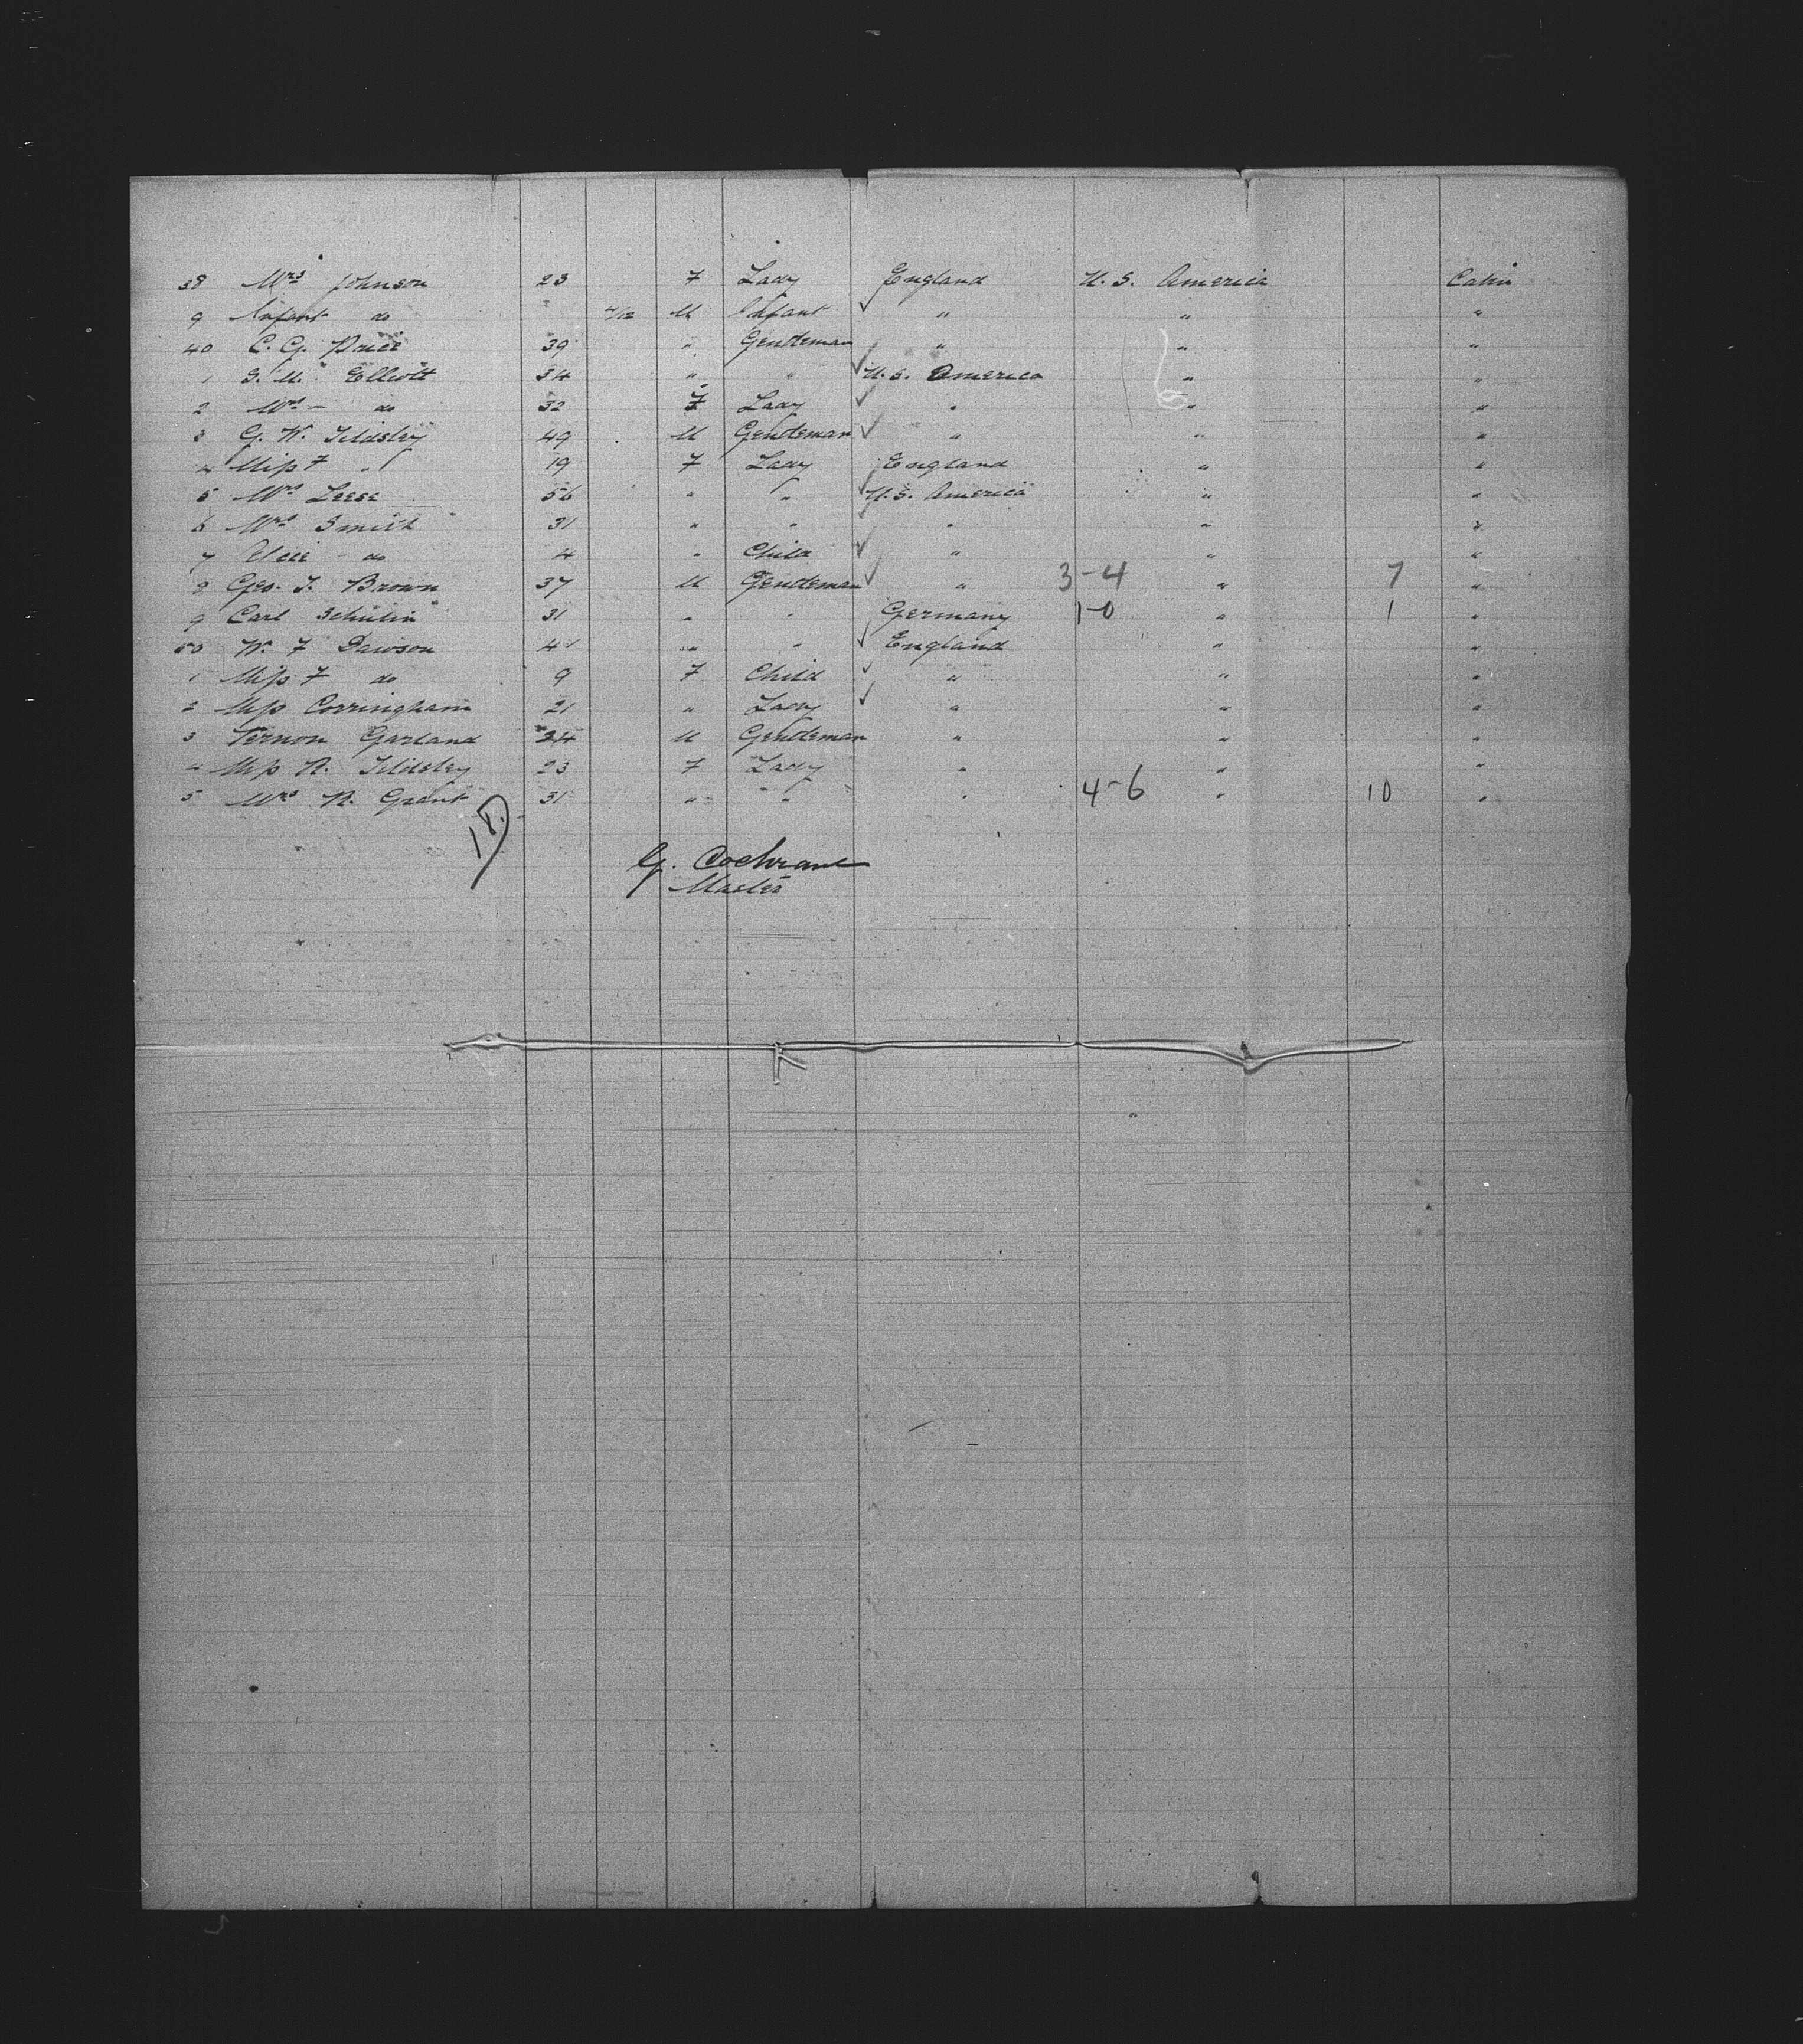 38 Mrs Johnson 23 F Lady England U. S. America Cabin
9 Infant do 4/12 M Infant " " "
40 C. G. Price 39 " Gentleman " " "
1 S. M. Elliott 34 " " U. S. America " "
2 Mrs — do 32 F Lady " " "
3 G. W. Tildsley 49 M Gentleman " " "
4 Miss F " 19 F Lady England " "
5 Mrs Leese 56 " " U. S. America " "
6 Mrs Smith 31 " " " " "
7 Alice do 4 " Child " " "
8 Geo. T. Brown 37 M Gentleman " 3-4 " 7 "
9 Carl 31 " " Germany 1-0 " 1 "
50 W. F Dawson 41 " " England " "
1 Miss F do 9 F Child " " "
2 Miss Corringham 21 " Lady " " "
3 Vernon Garland 24 M Gentleman " " "
4 Miss R. Tildsley 23 F Lady " " "
5 Mrs R. Grant 31 " " " 4-6 " 10 "
18
G. Cochrane
Master